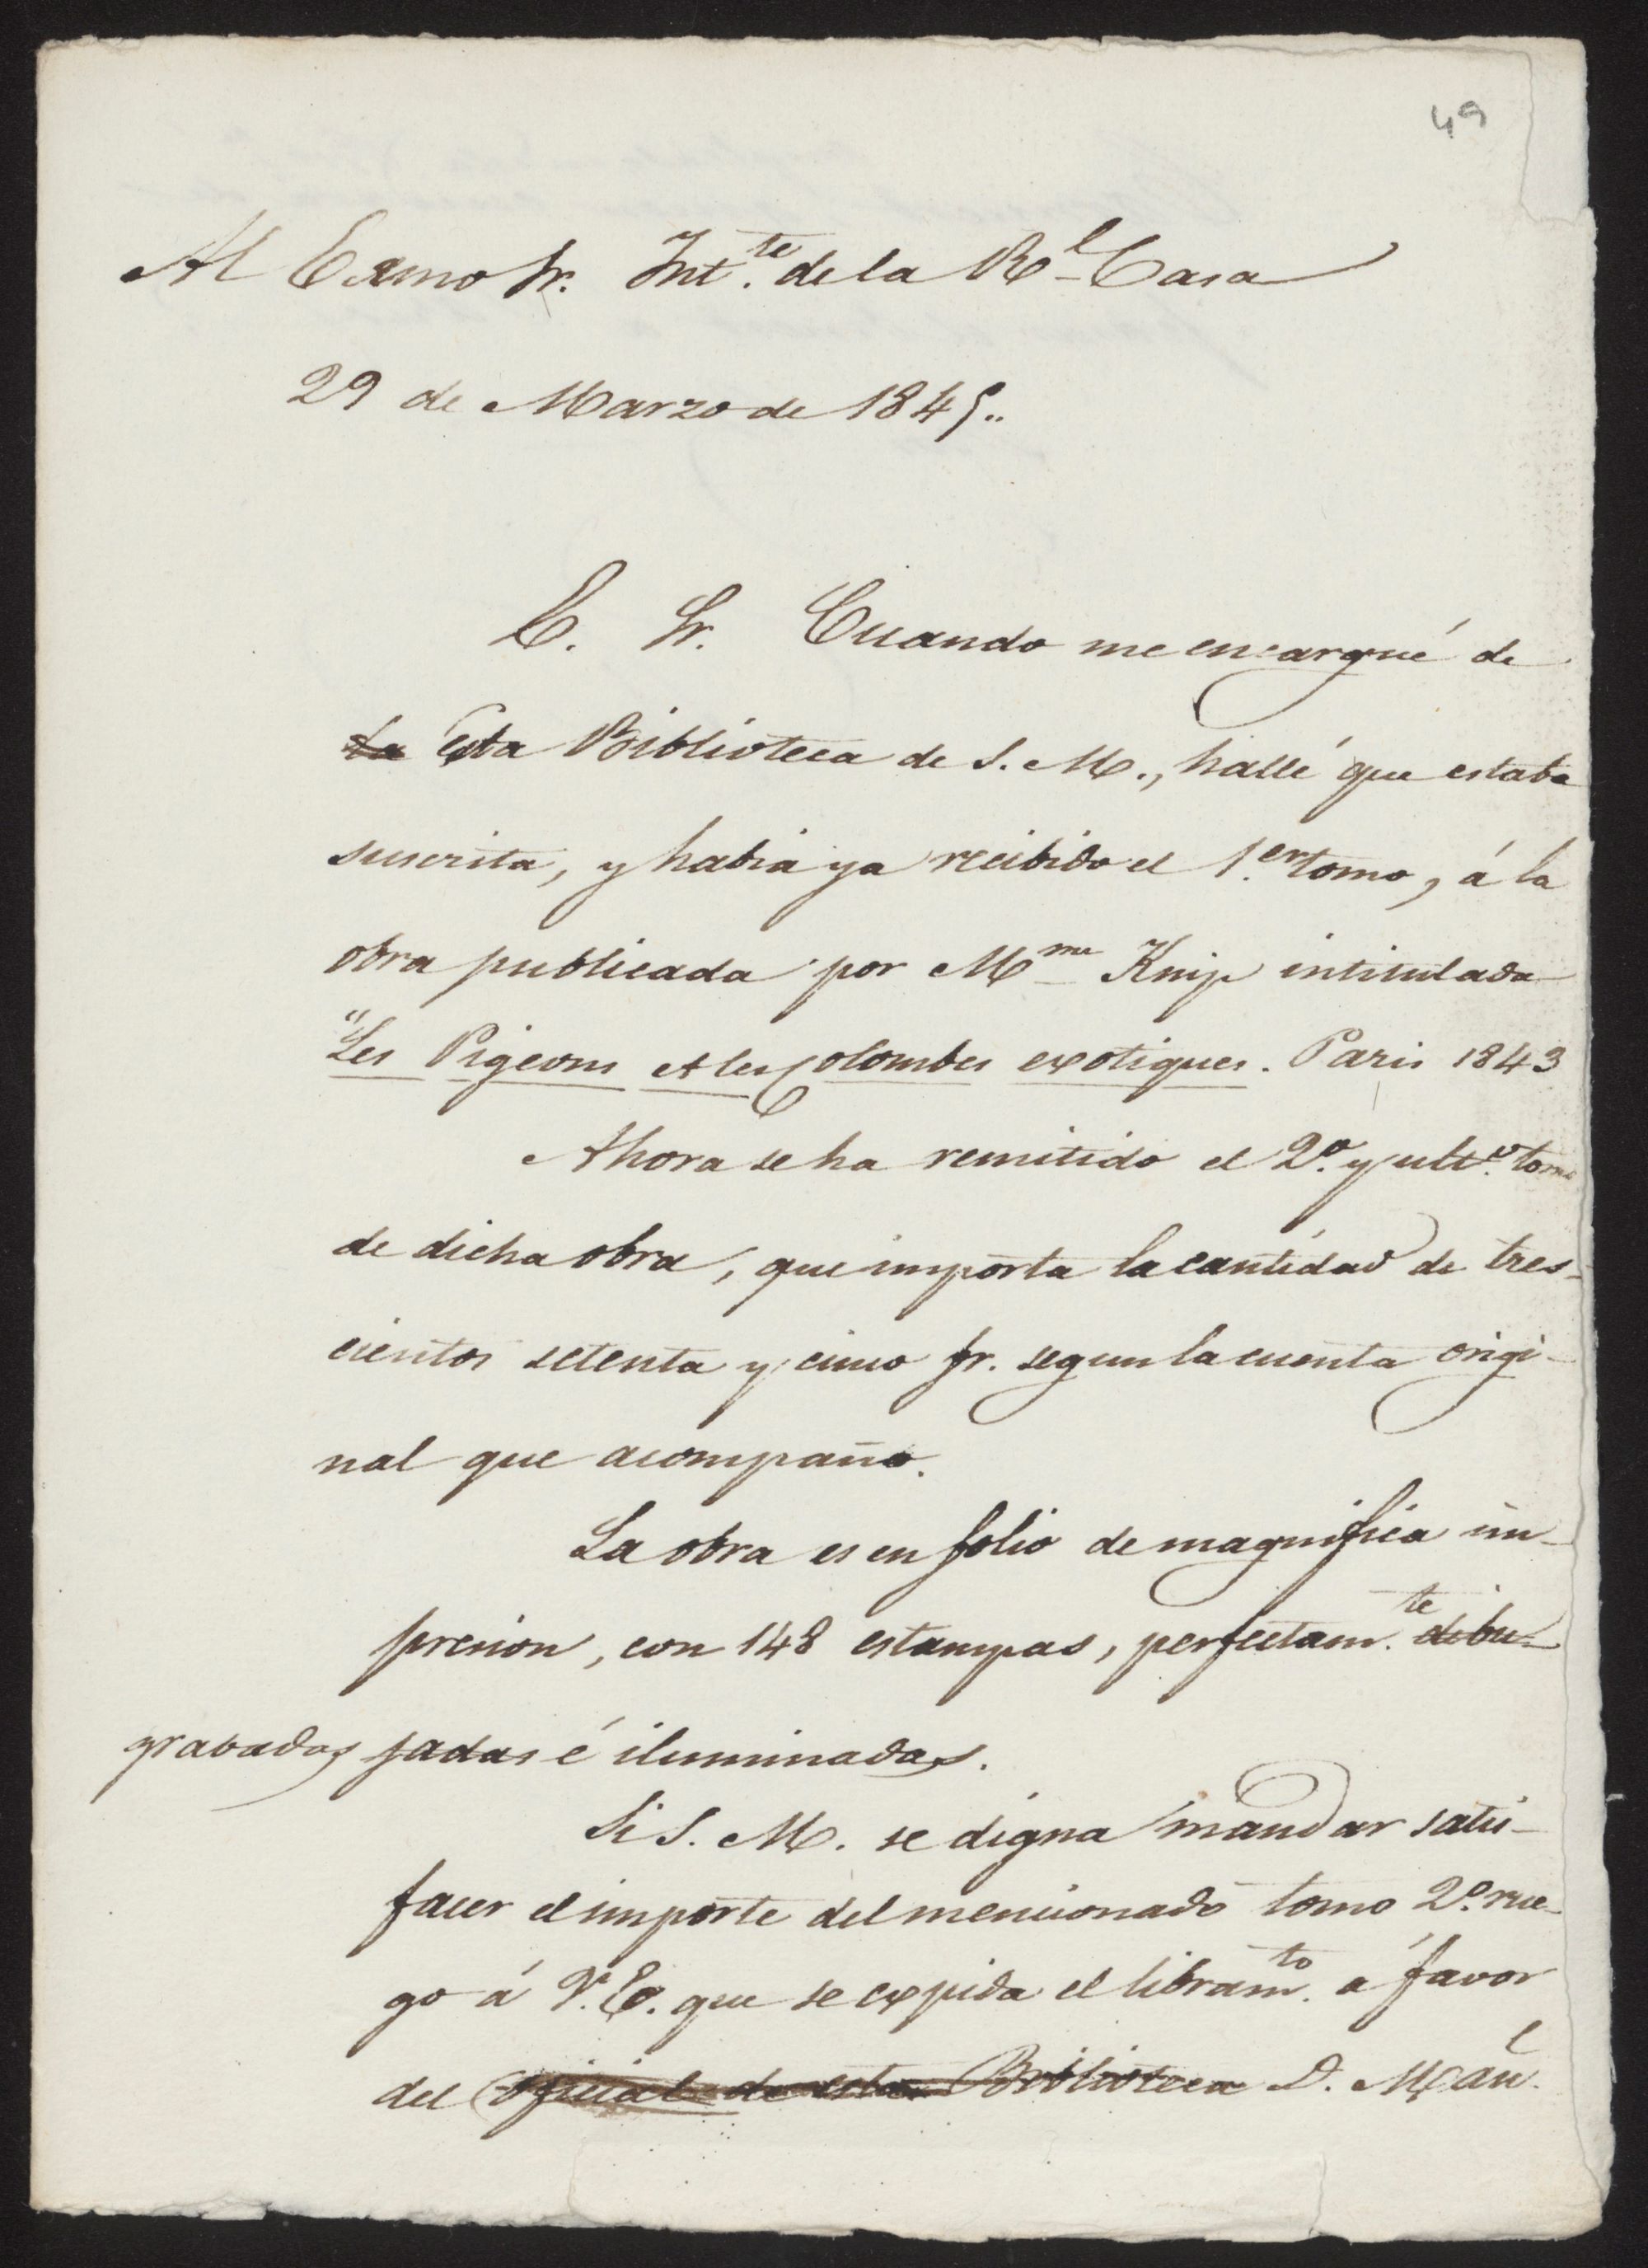 49
Al Exmo Sr. Int.te de la Rl Casa
29 de Marzo de 1845..
E. Sr. Cuando me encargué de
la Esta Biblioteca de S. M., hallé que estaba
suscrita, y habia ya recibido el 1.er tomo, á la
obra publicada por Mme Knip intitulada
"Les Pigeons et les Colombes exotiques. Paris 1843
Ahora se ha remitido el 2.o y ult.o tomo
de dicha obra, que importa la cantidad de tres-
cientos setenta y cinco fr. segun la cuenta origi-
nal que acompaño.
La obra es en folio de magnifica im-
presion, con 148 estampas, perfectam.te dibu-
grabadas jadas é iluminadas.
Si S. M. se digna mandar satis-
facer el importe del mencionado tomo 2.o rue-
go á V. E. que se expida el libram.to á favor
del oficial de esta Biblioteca D. Man.l